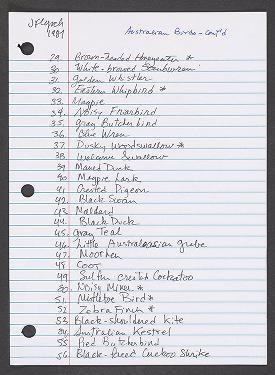 JFLynch
1981
Australian Birds - cont'd
29. Brown-headed Honeyeater *
30. White-browed Scrubwren
31. Golden Whistler
32. Eastern Whipbird *
33. Magpie
34. Noisy Friarbird
35. Gray Butcherbird
36. Blue Wren
37. Dusky Woodswallow *
38. Welcome Swallow
39. Maned Duck
40. Magpie Lark
41. Crested Pigeon
42. Black Swan
43. Mallard
44. Black Duck
45. Gray Teal
46. Little Australasian grebe
47. Moorhen
48. Coot
49. Sulfur crested Cockatoo
50. Noisy Miner *
51. Mistletoe Bird *
52. Zebra Finch *
53. Black-shouldered Kite
54. Australian Kestrel
55. Pied Butcherbird
56. Black-faced Cuckoo Shrike